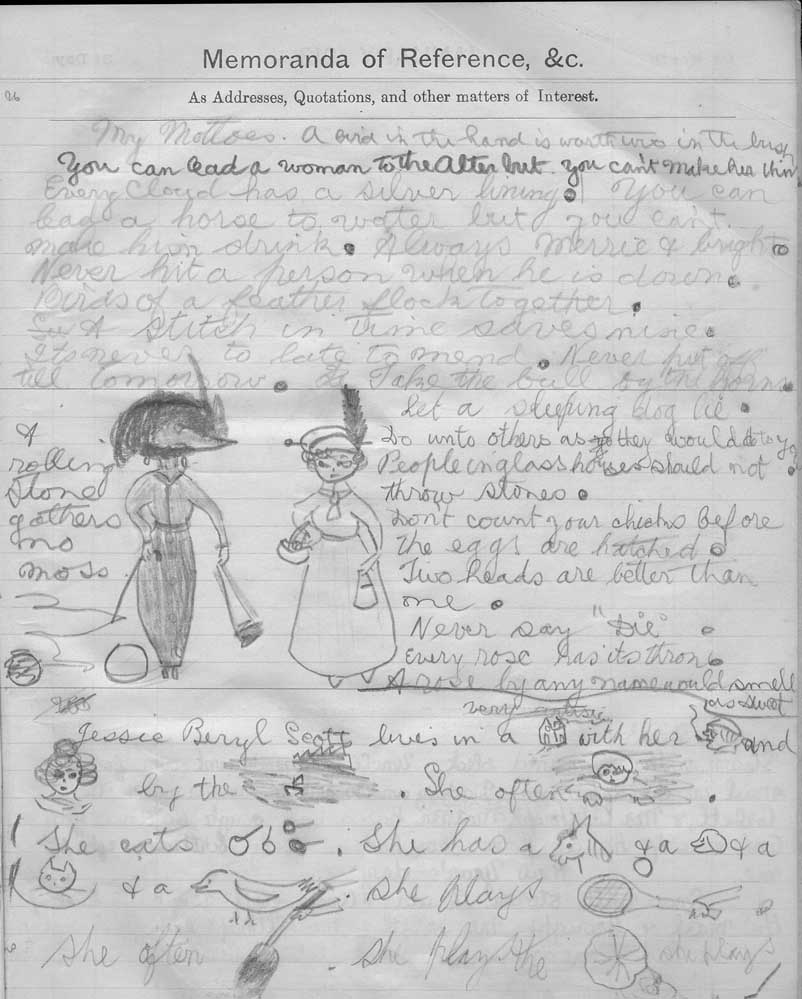 Memoranda of Reference, &c.
26
As Addresses, Quotations, and other matters of Interest.
My Mottoes. A bird in the hand is worth two in the bush
You can lead a woman to the Alter but you can't make her thin
Every Cloud has a silver lining. You can
lead a horse to water but you can't.
make him drink. Always Merrie & bright
Never hit a person when he is down.
Birds of a feather flock together.
A Stitch in Time saves nine.
Its never to late to mend. Never put off
till tomorrow. Take the bull by the horns.
Let a sleeping dog lie.
Do unto others as they would do to you
People in glass houses should not
throw stones.
Don't count your chicks before
the eggs are hatched.
Two heads are better than
one.
Never say "Die"
Every rose has its thron.
A rose by any name would smell
as sweet
A
rolling
stone
gathers
no
moss.
very
Jessie Beryl Scott lives in a with her and
by the . She often .
She eats . She has a & a & a
& a . She plays
She often . She plays the she plays